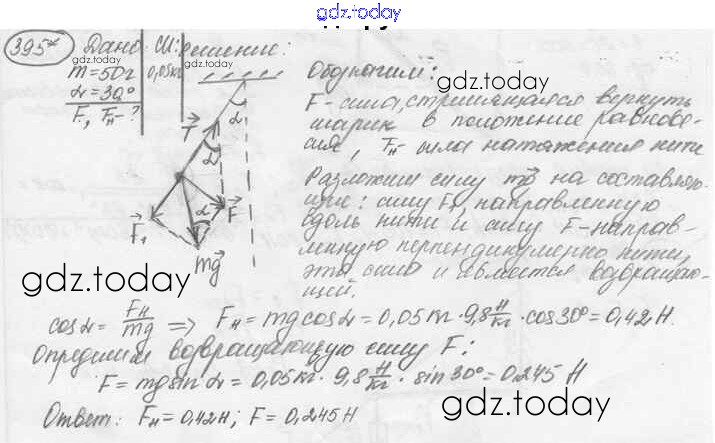 gdz.today
395*
Дано:
СИ:
Решение:
m=50г
0,05кг
α=30°
F, Fн-?
gdz.today
α
T
α
α
F
F₁
mg
Обозначим:
gdz.today
F-сила, стремящаяся вернуть
шарик в положение равнове-
сия, Fн-сила натяжения нити
Разложим силу mg на составляю-
щие: силу F₁, направленную
вдоль нити и силу F-направ-
ленную перпендикулярно нити,
эта сила и является возвращаю-
щей.
gdz.today
cosα = Fн/mg ⇒ Fн = mg cosα = 0,05кг · 9,8 Н/кг · cos30° = 0,42Н.
Определим возвращающую силу F:
F = mg sin α = 0,05кг · 9,8 Н/кг · sin 30° = 0,245 Н
Ответ: Fн = 0,42Н; F = 0,245Н
gdz.today